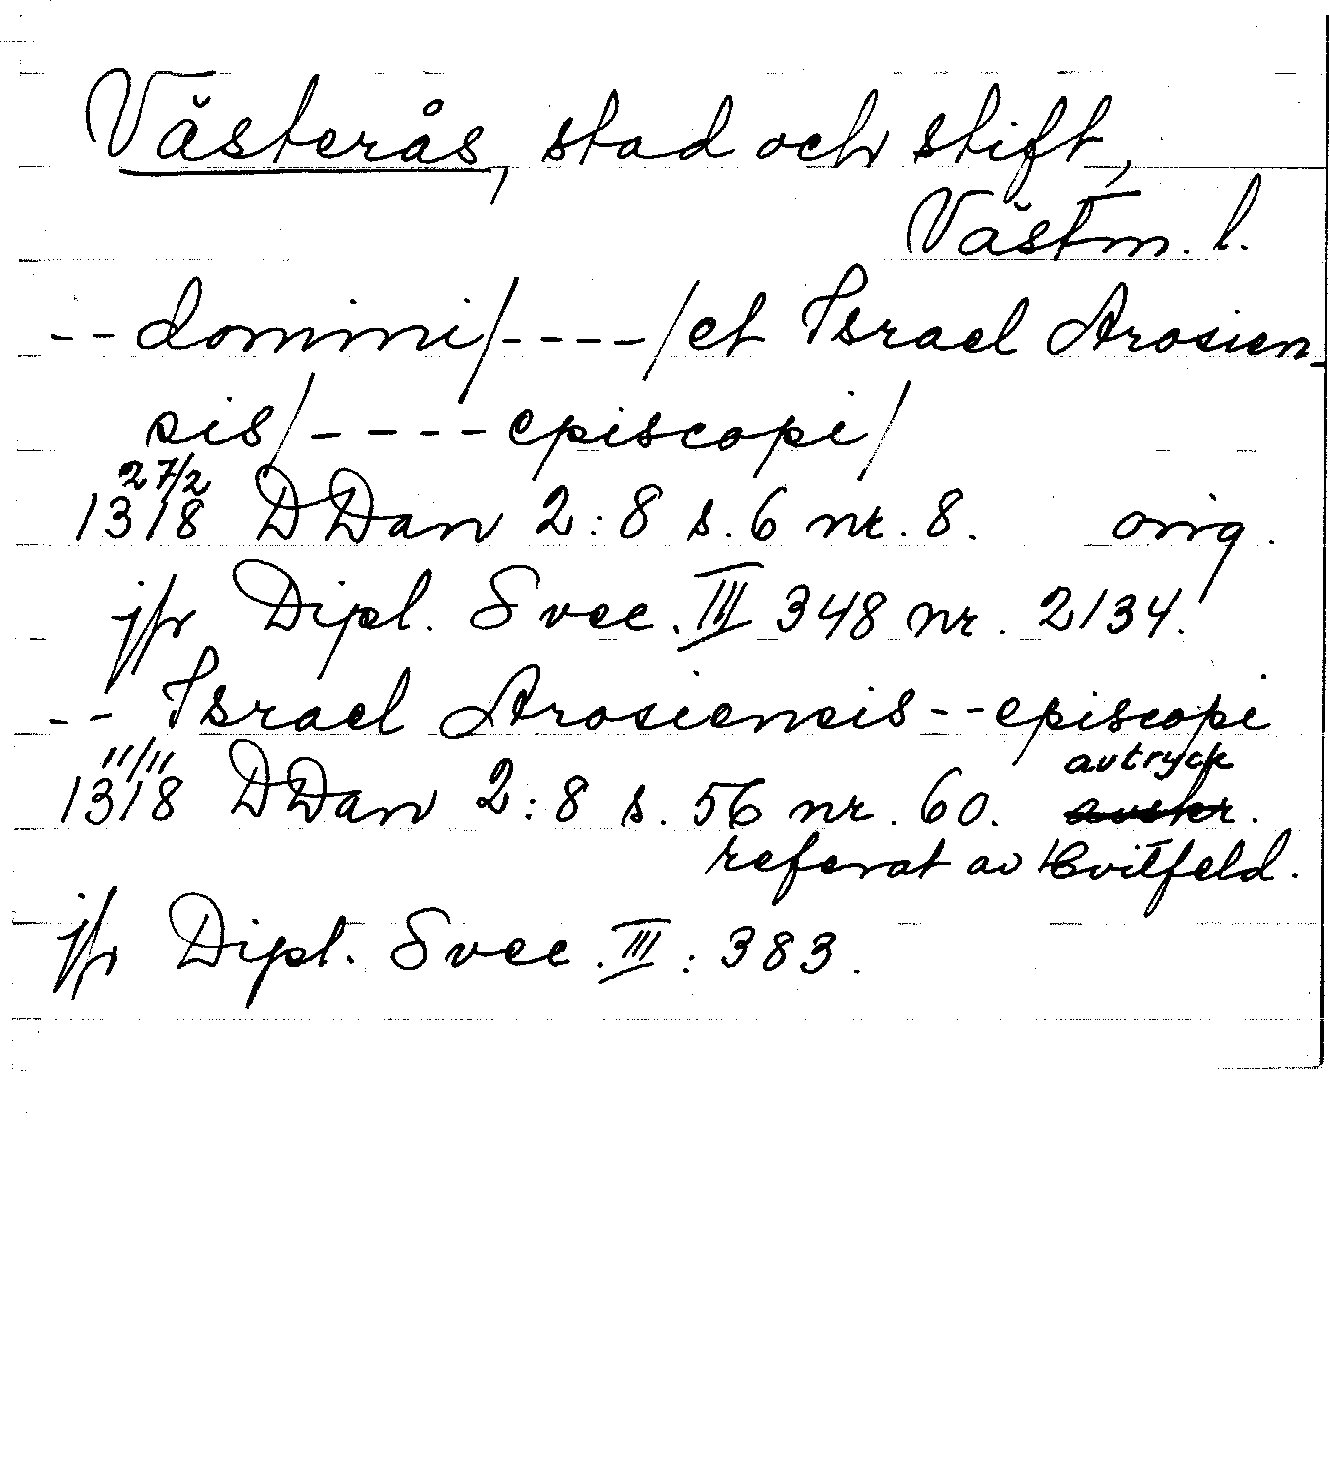 Västerås, stad och stift,
Västm. l.
-- domini/----/et Israel Arosien-
sis/----episcopi/
27/2
1318 DDan 2:8 s. 6 nr. 8. orig.
jfr Dipl. Svec. III 348 nr. 2134.
-- Israel Arosiensis -- episcopi
11/11 avtryck
1318 DDan 2:8 s. 56 nr. 60. avskr.
referat av Hvitfeld.
jfr Dipl. Svec. III: 383.